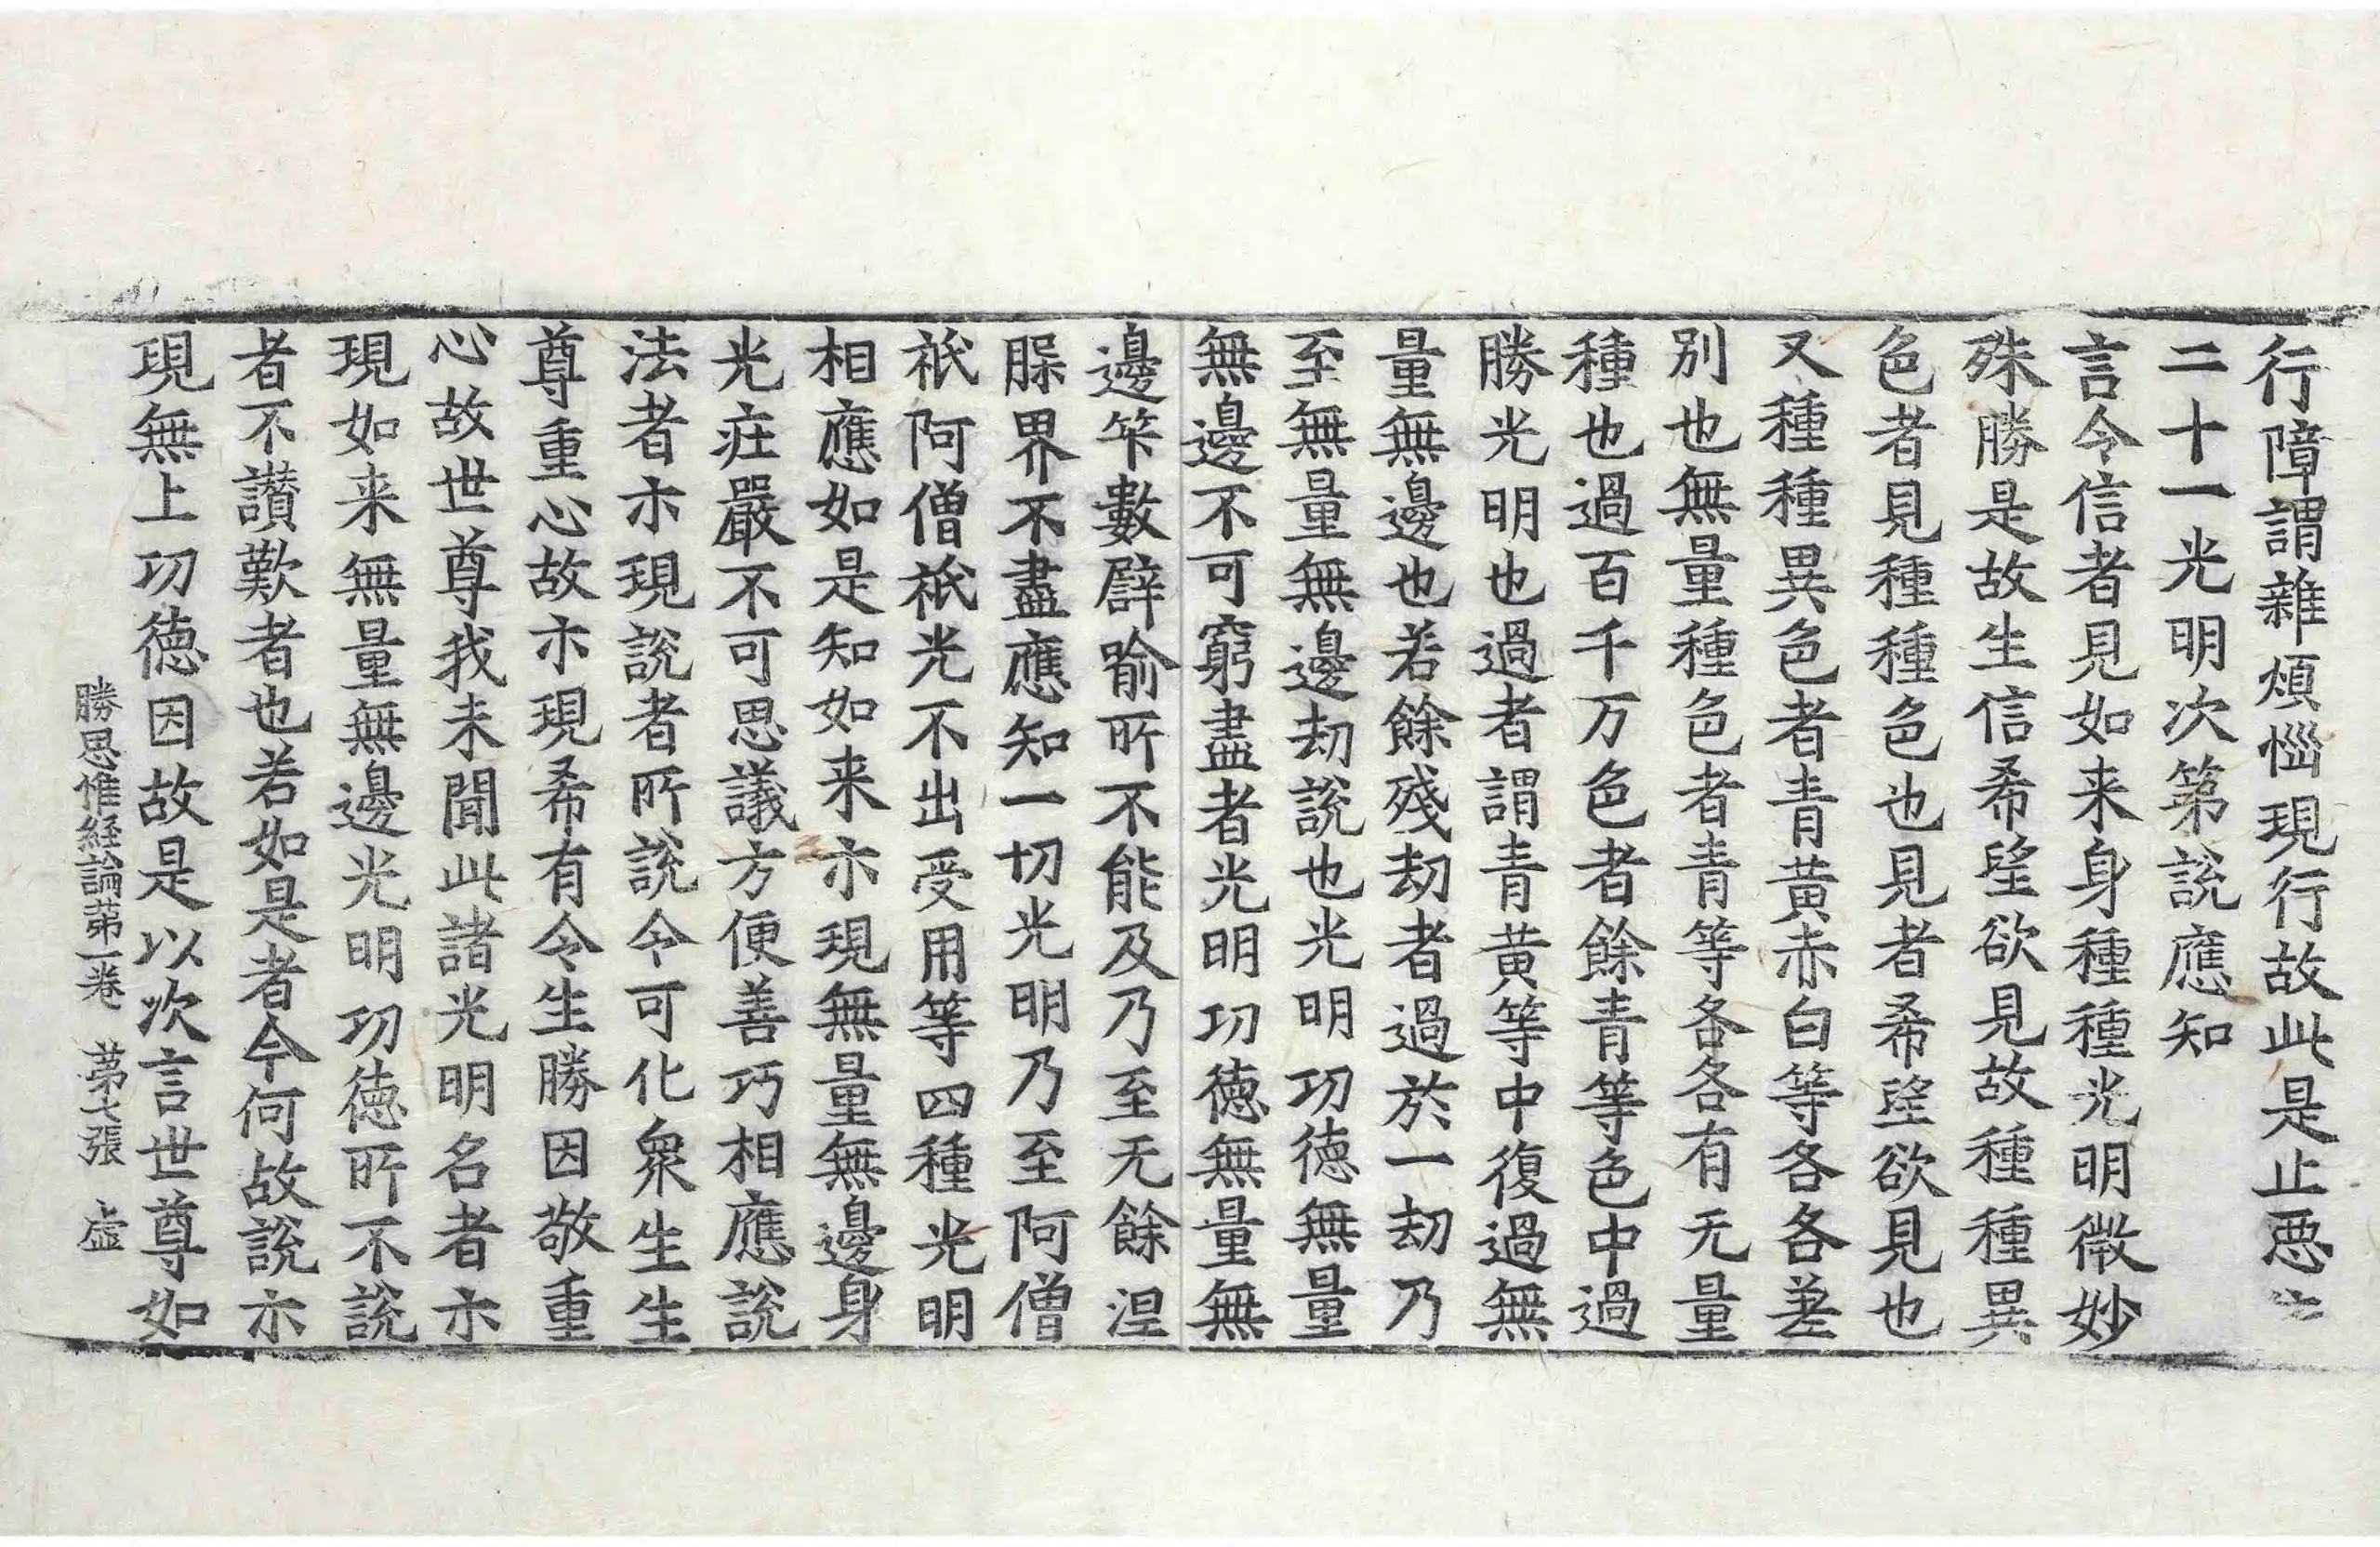 行障謂雜煩惱現行故此是止惡
二十一光明次第說應知
言令信者見如来身種種光明微妙
殊勝是故生信希望欲見故種種異
色者見種種色也見者希望欲見也
又種種異色者青黃赤白等各各差
別也無量種色者青等各各有无量
種也過百千万色者餘青等色中過
勝光明也過者謂青黃等中復過無
量無邊也若餘殘劫者過於一劫乃
至無量無邊劫說也光明功德無量
無邊不可窮盡者光明功德無量無
邊笇數譬喻所不能及乃至无餘涅
䐗界不盡應知一切光明乃至阿僧
祇阿僧祇光不出受用等四種光明
相應如是知如来亦現無量無邊身
光莊嚴不可思議方便善巧相應說
法者亦現說者所說令可化衆生生
尊重心故亦現希有令生勝因敬重
心故世尊我未聞此諸光明名者亦
現如来無量無邊光明功德所不說
者不讃歎者也若如是者今何故說亦
現無上功德因故是以次言世尊如
勝思惟經論第一卷 第七張 虛